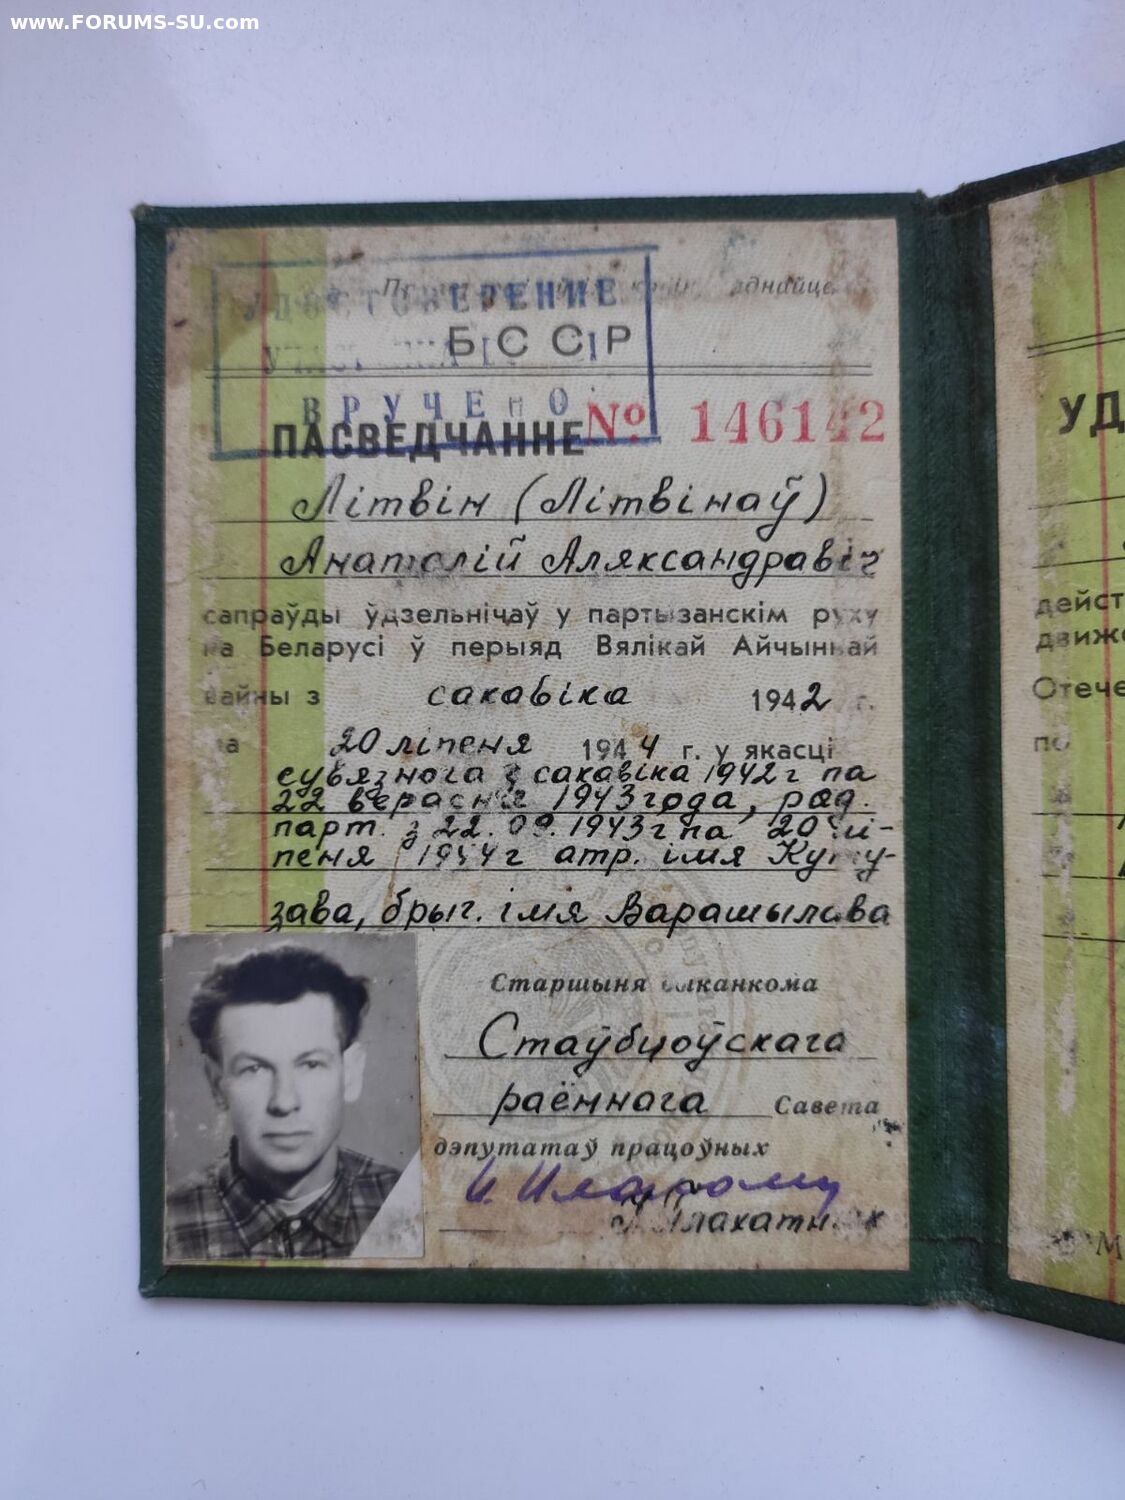 www.FORUMS-SU.com
УДОСТОВЕРЕНИЕ
БССР
ВРУЧЕНО
ПАСВЕДЧАННЕ № 146142
Літвін (Літвінаў)
Анатолій Аляксандравіч
сапраўды ўдзельнічаў у партызанскім руху
на Беларусі ў перыяд Вялікай Айчыннай
вайны з сакавіка 1942 г.
па 20 ліпеня 1944 г. у якасці
сувязнога з сакавіка 1942 г па
22 верасня 1943 года, рад.
парт. з 22.09.1943 г па 20 лі-
пеня 1944 г атр. імя Куту-
зава, брыг. імя Варашылава
Старшыня выканкома
Стаўбцоўскага
раённага Савета
дэпутатаў працоўных
УД
дейст
движ
Отече
по
М